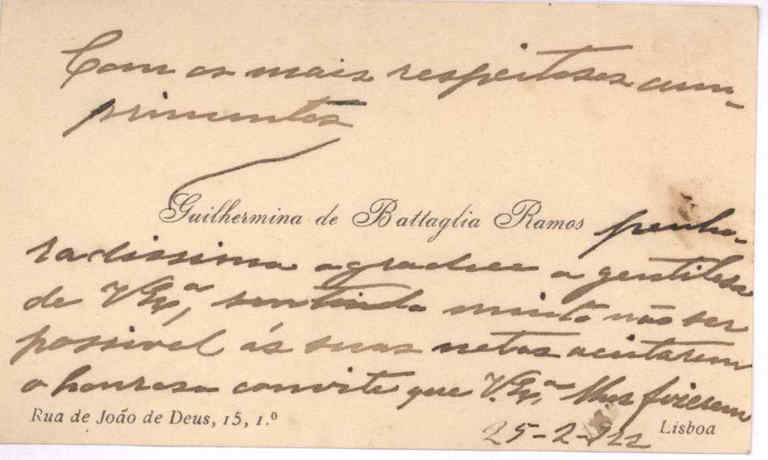 Com os mais respeitosos cum-
primentos
Guilhermina de Battaglia Ramos penho-
radissima agradece a gentileza
de V. Exª, sentindo muito não ser
possivel ás suas netas aceitarem
o honroso convite que V. Exª lhes fizeram
Rua de João de Deus, 15, 1.º
Lisboa
25-2-